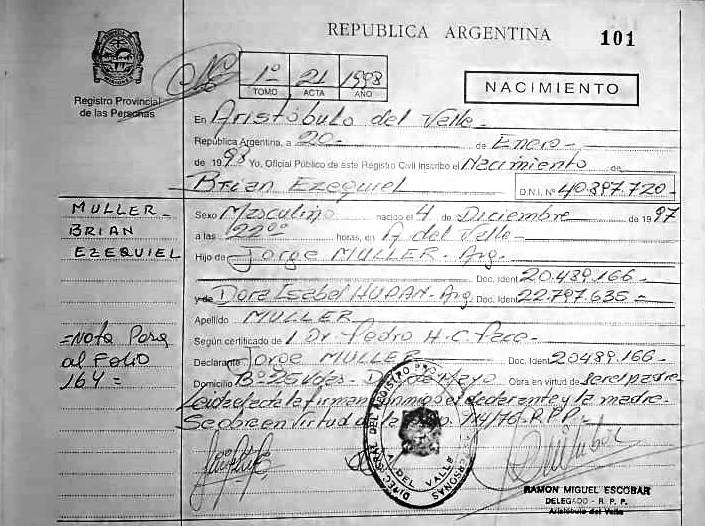 REPUBLICA ARGENTINA
101
Registro Provincial
de las Personas
1º 21 1998
TOMO ACTA AÑO
NACIMIENTO
En Aristóbulo del Valle
República Argentina, a 20 de Enero
de 1998 Yo, Oficial Público de este Registro Civil inscribo el Nacimiento de
Brian Ezequiel D.N.I. Nº 40.397.720
MULLER
BRIAN
EZEQUIEL
Sexo Masculino nacido el 4 de Diciembre de 1997
a las 22ºº horas, en A. del Valle
Hijo de Jorge MULLER - Arg.
Doc. Ident. 20.489.166
y de Dora Isabel HUPAN - Arg. Doc. Ident. 22.797.635
Apellido MULLER
=Nota Pasa
al FOLIO
164=
Según certificado de Dr. Pedro H. C.
Declarante Jorge MULLER Doc. Ident. 20489.166
Domicilio Bº 25 de Mayo Obra en virtud de ser el padre
Leida el acta la firman conmigo el declarante y la madre
Se obra en Virtud de la R.P.P.
DEL REGISTRO PERSONAS
A. DEL VALLE
RAMON MIGUEL ESCOBAR
DELEGADO - R. P. P.
Aristóbulo del Valle